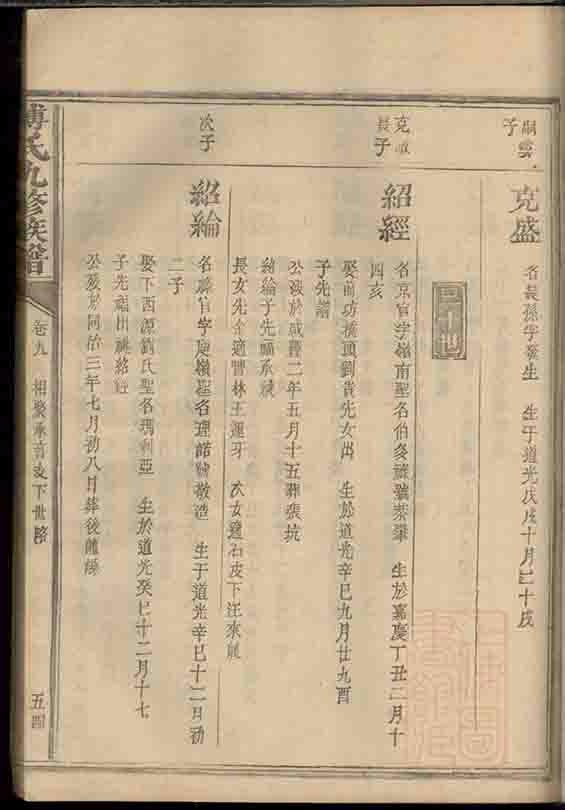 嗣雲
子
克盛
名長孫字發生 生于道光戊戌十月二十戌
三十世
克
長子
紹經
名京官字嶺南聖名伯多祿號崇攀 生於嘉慶丁丑二月十
四亥
娶前坊橋頭劉貴先女出 生於道光辛巳九月廿九酉
子先譜
公歿於咸豐二年五月十五葬張坑
紹綸子先瞞承祧
長女先金適曹林王運牙 次女適石皮下汪來
次子
紹綸
名縣官字庾嶺聖名理諾號敬造 生于道光辛巳十二月初
二子
娶下西源劉氏聖名瑪利亞 生於道光癸巳十二月十七
子先瞞出祧紹經
公歿於同治三年七月初八日葬後
傅氏九修族譜
卷九 相聚承首支下世略
五四